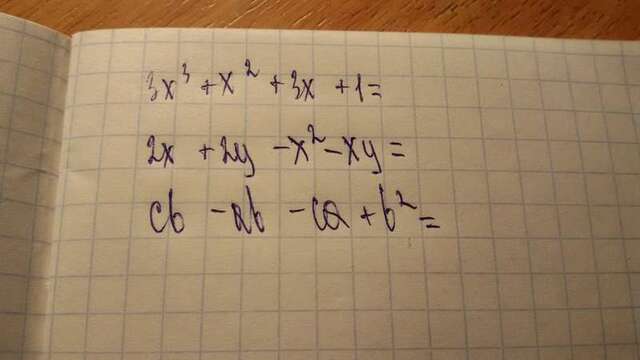 3x³ + x² + 3x + 1 =
2x + 2y - x² - xy =
cb - ab - ca + b² =